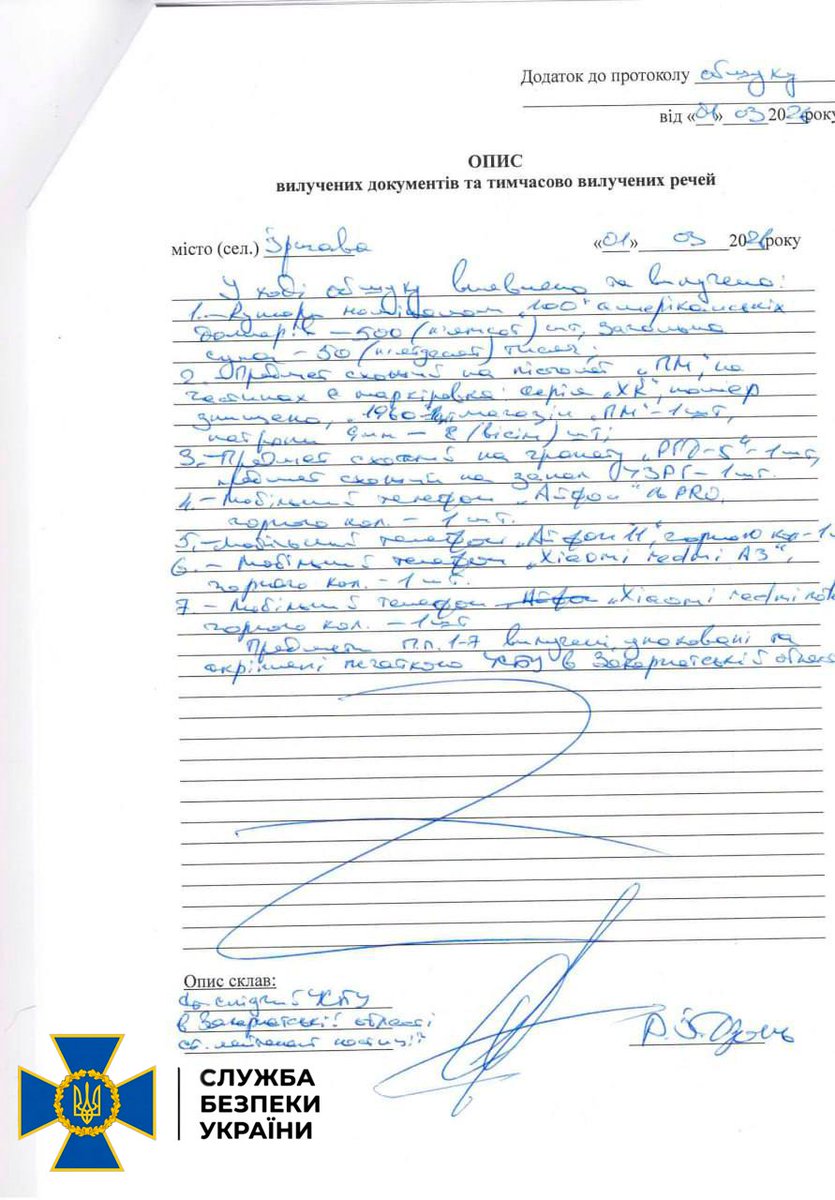 Додаток до протоколу обшуку
від «01» 03 2026року
ОПИС
вилучених документів та тимчасово вилучених речей
місто (сел.) Іршава «01» 03 2026року
У ході обшуку виявлено та вилучено:
1.– Купюри номіналом „100" американських
доларів – 500 (п'ятсот) шт, загальна
сума – 50 (п'ятдесят) тисяч;
2. – Предмет схожий на пістолет „ПМ", на
частинах є маркіровка: серія „ХК", номер
знищено, „1960", магазин „ПМ" – 1 шт,
патрони 9мм – 8 (вісім) шт;
3.– Предмет схожий на гранату „РГД-5" – 1 шт,
предмет схожий на запал УЗРГ – 1 шт.
4. – Мобільний телефон „Айфон" 16 PRO,
чорного кол. – 1 шт.
5.–Мобільний телефон „Айфон 11", чорного кол–1
6. – Мобільний телефон „Xiaomi redmi A3",
чорного кол. – 1 шт.
7. – Мобільний телефон „Xiaomi redmi note
чорного кол. – 1 шт
Предмети п.п. 1-7 вилучені, упаковані та
скріплені печаткою УСБУ в Закарпатській
Опис склав:
слідчий УСБУ
в Закарпатській області
ст. лейтенант юстиції
СЛУЖБА
БЕЗПЕКИ
УКРАЇНИ